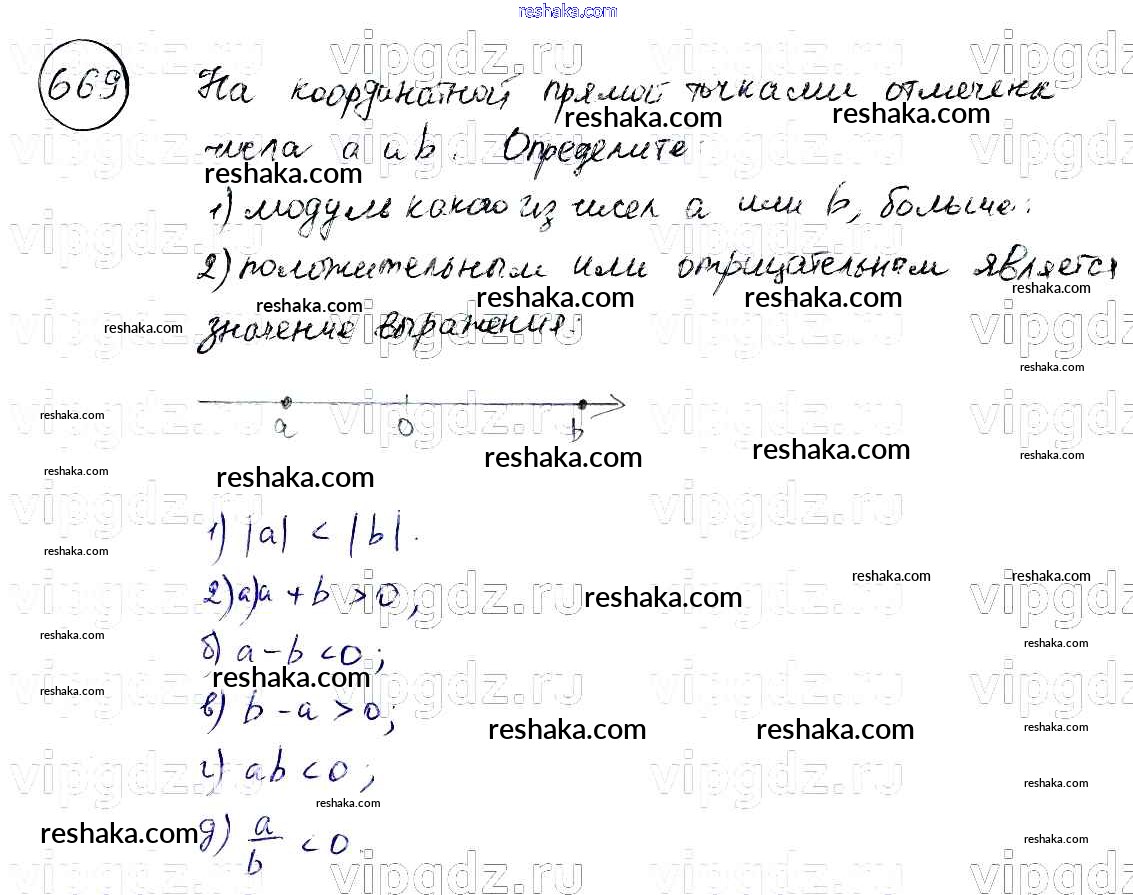 reshaka.com
669 На координатной прямой точками отмечена
числа a и b. Определите:
1) модуль какого из чисел a или b, больше:
2) положительным или отрицательным является
значение выражения:
a 0 b
1) |a| < |b|.
2) а) a + b > 0;
б) a - b < 0;
в) b - a > 0;
г) ab < 0;
д) a/b < 0